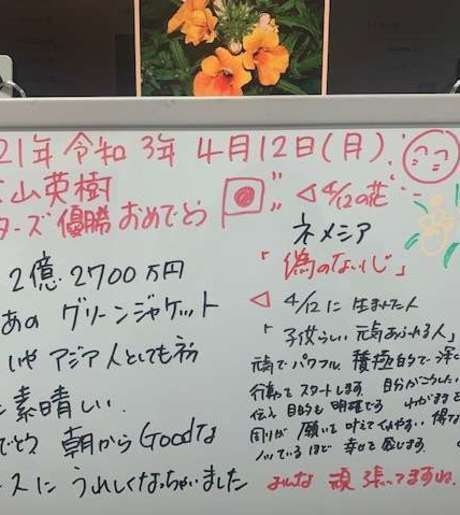 21年 令和3年 4月12日(月)
山英樹
ターズ 優勝 おめでとう
◁ 4/12の花
ネメシア
「偽のない心」
2億2700万円
あの グリーンジャケット
いや アジア人としても初
素晴しい.
でとう 朝からGoodな
ースに うれしくなっちゃいました
◁ 4/12に 生まれた人
「子供らしい 元気あふれる人」
元気で パワフル 積極的で 深
行動を スタートします. 自分がこうしたい
伝え 目的も 明確です わがままを
周りが 願いを 叶えて
いるほど 幸せを 感じます.
みんな 頑張ってますね.